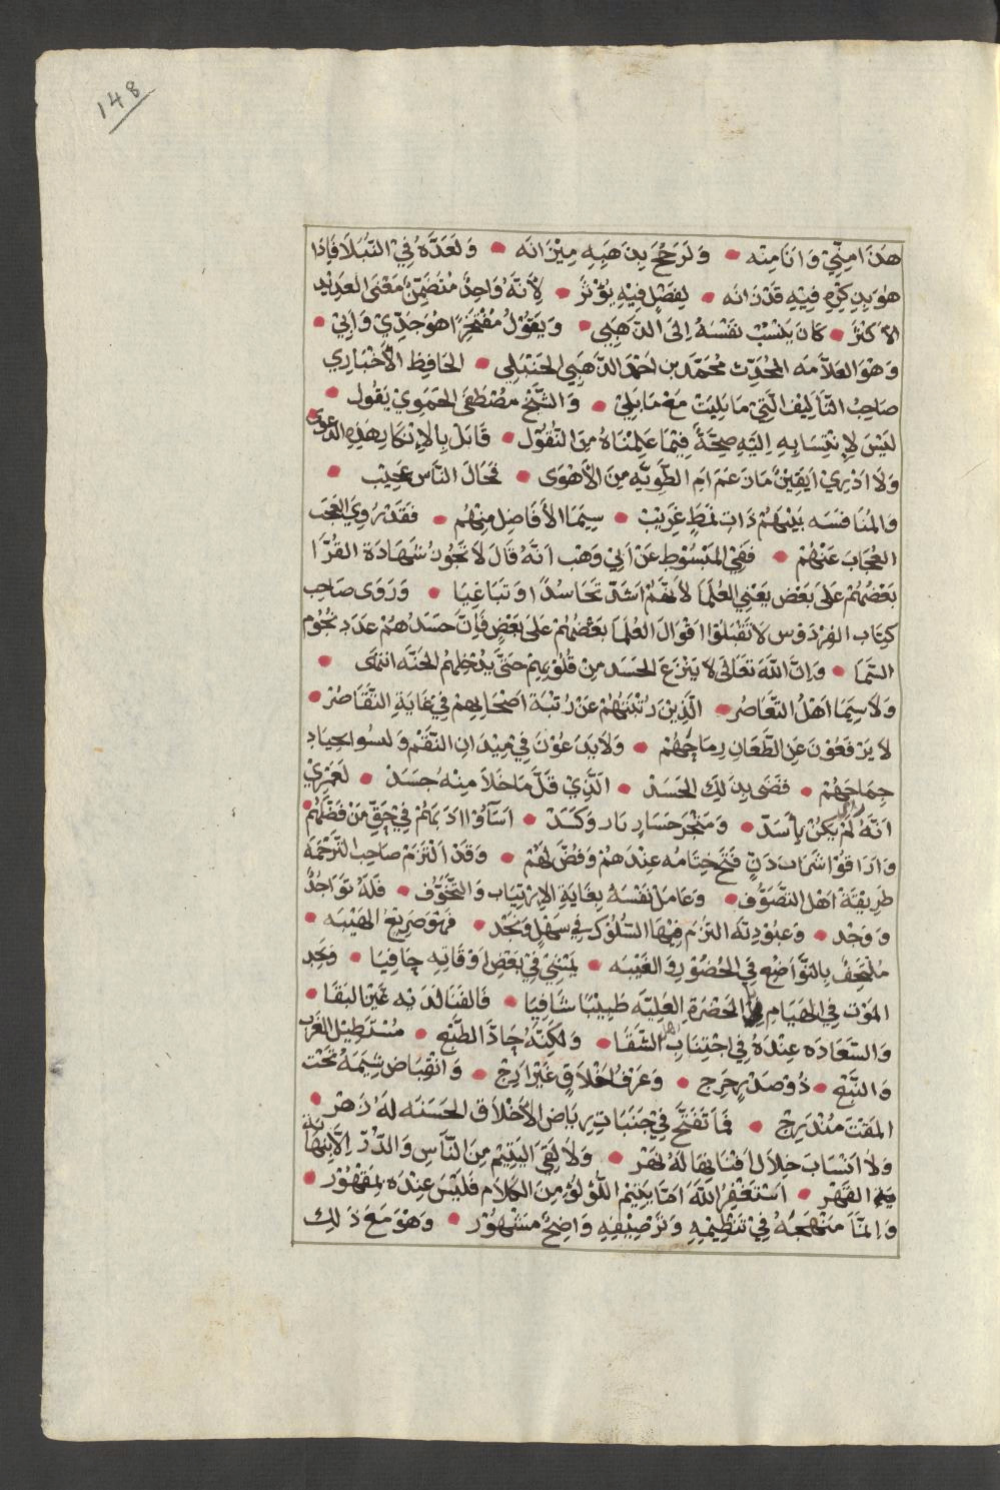 148
هذا مني وانا منه • ولرجح بذهبه ميزانه • ولعده في النبلا فاذا
هو بذكره فيه قد زانه • لفضل فيه يؤثر • لأنه واحد متضمن معنى العديد
الاكثر • كان ينسب نفسه الى الذهبي • ويقول مفتخرًا هو جدي وابي •
وهو العلامه المحدث محمد بن احمد الذهبي الحنبلي • الحافظ الأخباري
صاحب التاليف التي ما بليت مع ما بلي • والشيخ مصطفى الحموي يقول •
ليس لانتسابه اليه صحة فيما علمناه من النقول • قابل بالانكار هذه الدعوى
ولا ادري أيقين ما زعم ام الطويه من الأهوى • فحال الناس عجيب •
والمنافسه بينهم ذات نمط غريب • سيما الأفاضل منهم • فقد روي العجب
العجاب عنهم • ففي المبسوط عن ابي وهب انه قال لا تجوز شهادة القرا
بعضهم على بعض يعني العلما لأنهم اشد تحاسدًا وتباغيا • وروى صاحب
كتاب الفردوس لا تقبلوا اقوال العلما بعضهم على بعض فإن حسدهم عدد نجوم
السما • وان الله تعالى لا ينزع الحسد من قلوبهم حتى يدخلهم الجنه انتهى •
ولا سيما اهل التعاصر • الذين رتبتهم عن رتبة اصحابهم في غاية التقاصر •
لا يرفعون عن الطعان رماحهم • ولا يدعون في ميدان النقم ولسوا لجياد
جماحهم • فقضى بذلك الحسد • الذي قل ما خلا منه جسد • لعمري
انه لم يكن بأسد • ومتجر خسار بار وكسد • اساؤا ادبهم في حق من فضلهم •
واذاقوا شراب دن فتح ختامه عندهم وفض لهم • وقد التزم صاحب الترجمة
طريقة اهل التصوف • وعامل نفسه بغاية الارتياب والتخوف • فله تواجد
ووجد • وعبودته التزم فيها السلوك في سهل ونجد • فهو صريع الهيبه •
ملتحف بالتواضع في الحضور والغيبه • يمشي في بعض اوقاته حافيا • ويجد
الموت في الهيام بالحضرة العليه طبيبا شافيا • فالفنا لديه عين البقا •
والسعاده عنده في اجتناب اهل الشقا • ولكنه حاد الطبع • مستطيل الغرب
والنبع • ذو صدر حرج • وعرف اخلاق غير ارج • وانقباض شيمة تحت
المقت مندرج • فما تفتح في جنبات رياض الأخلاق الحسنه له زهر •
ولا انساب خلال افنانها له نهر • ولا لقي اليتيم من الناس والدر الا بنهاية
القهر • استغفر الله اما يتيم اللؤلؤ من الكلام فليس عنده بمقهور •
وانما منهجه في تنظيمه وترصيفه واضح مشهور • وهو مع ذلك